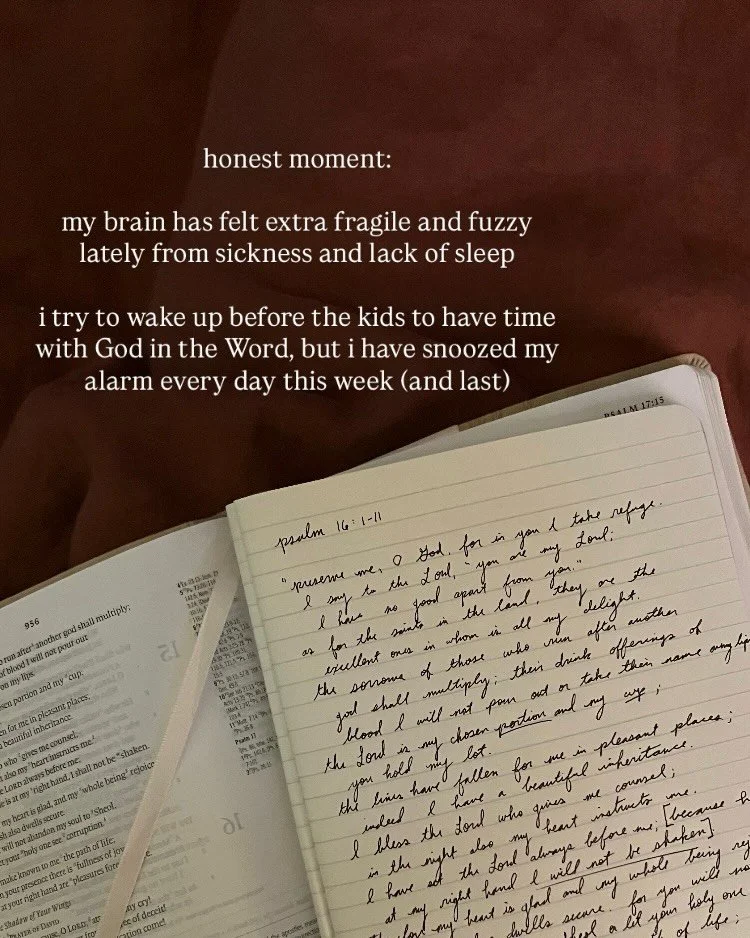 honest moment:
my brain has felt extra fragile and fuzzy
lately from sickness and lack of sleep
i try to wake up before the kids to have time
with God in the Word, but i have snoozed my
alarm every day this week (and last)
PSALM 17:15
psalm 16:1-11
"preserve me, O God, for in you I take refuge.
I say to the Lord, "you are my Lord;
I have no good apart from you."
as for the saints in the land, they are the
excellent ones in whom is all my delight.
the sorrows of those who run after another
god shall multiply; their drink offerings of
blood I will not pour out or take their name on my lips
the Lord is my chosen portion and my cup;
you hold my lot.
the lines have fallen for me in pleasant places;
indeed I have a beautiful inheritance.
I bless the Lord who gives me counsel;
in the night also my heart instructs me.
I have set the Lord always before me; [because h
at my right hand I will not be shaken]
my heart is glad and my whole being re
dwells secure. for you will no
let your holy one
of life;
956
run after another god shall multiply;
of blood I will not pour out
on my lips.
sen portion and my cup;
en for me in pleasant places;
beautiful inheritance.
who gives me counsel;
also my heart instructs me.
LORD always before me;
is at my right hand, I shall not be shaken.
my heart is glad, and my whole being rejoice
sh also dwells secure.
will not abandon my soul to Sheol,
et your holy one see corruption.
make known to me the path of life;
n your presence there is fullness of joy
at your right hand are pleasures fore
Shadow of Your Wings
PRAYER OF DAVID
USE, O LORD; at
my cry!
of deceit!
ation come!
Psalm 17
15
16